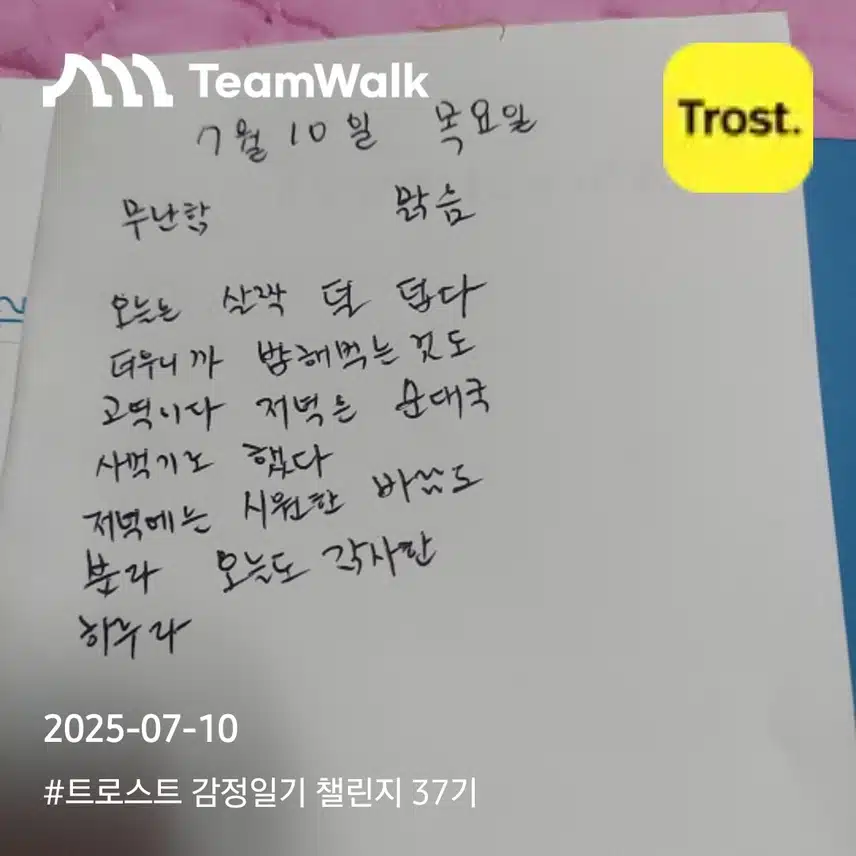 TeamWalk
Trost.
7월 10일 목요일
무난함 맑음
오늘는 살짝 덜 덥다
더우니까 밥해먹는것도
고역이다 저녁은 순대국
사먹기도 했다
저녁에는 시원한 바람도
분다 오늘도 감사한
하루다
2025-07-10
#트로스트 감정일기 챌린지 37기